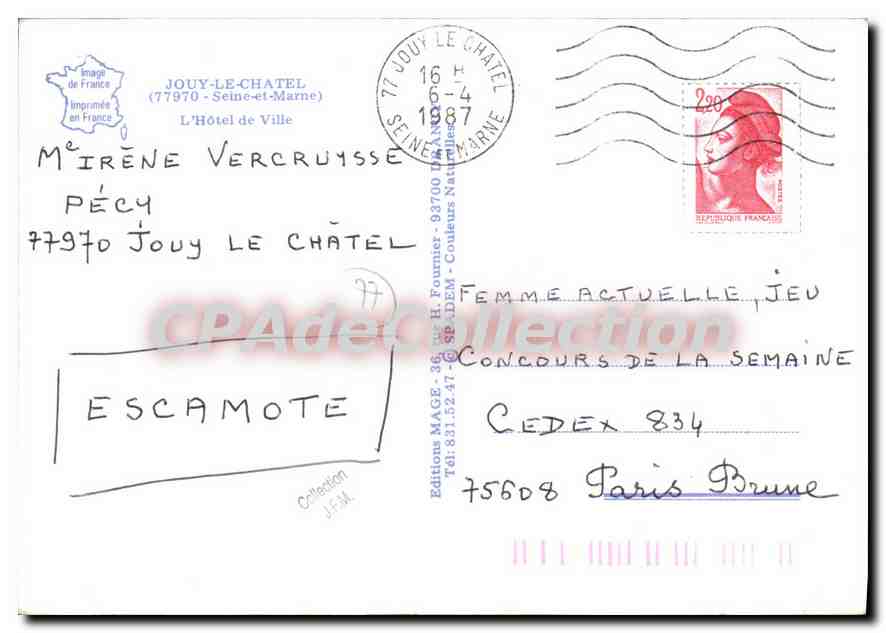 Image
de France
Imprimée
en France
JOUY-LE-CHATEL
(77970 - Seine-et-Marne)
L'Hôtel de Ville
77 JOUY LE CHATEL
16 H
6-4
1987
SEINE-MARNE
2,20
POSTES
REPUBLIQUE FRANÇAISE
Me IRÈNE VERCRUYSSE
PÉCY
77970 JOUY LE CHÂTEL
77
ESCAMOTE
Collection
J.F.M.
Editions MAGE - 36, rue H. Fournier - 93700 DRANCY
Tél: 831.52.47 - © SPADEM - Couleurs Naturelles
FEMME ACTUELLE, JEU
CONCOURS DE LA SEMAINE
CEDEX 834
75608 Paris Brune
CPAdeCollection